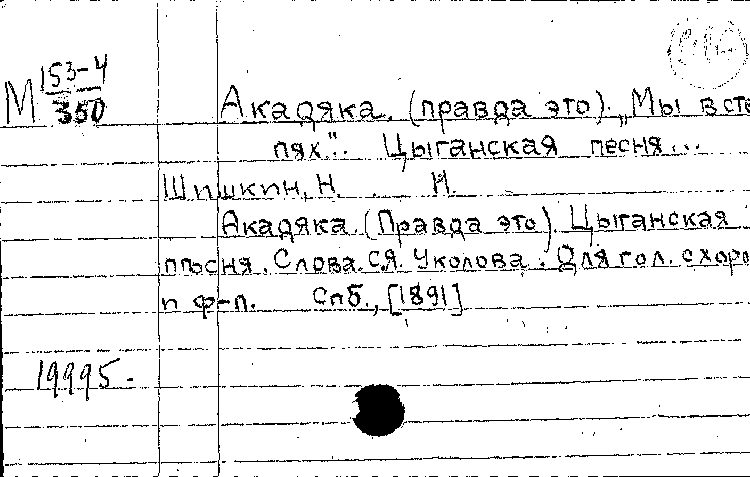 М 153-4
350
Акадяка. (правда это). „Мы в сте
пях". Цыганская песня...
Шишкин, Н. Н.
Акадяка. (Правда это). Цыганская
пѣсня. Слова С.Я. Уколова. Для гол. с хоро
и ф-п. Спб., [1891]
19995.